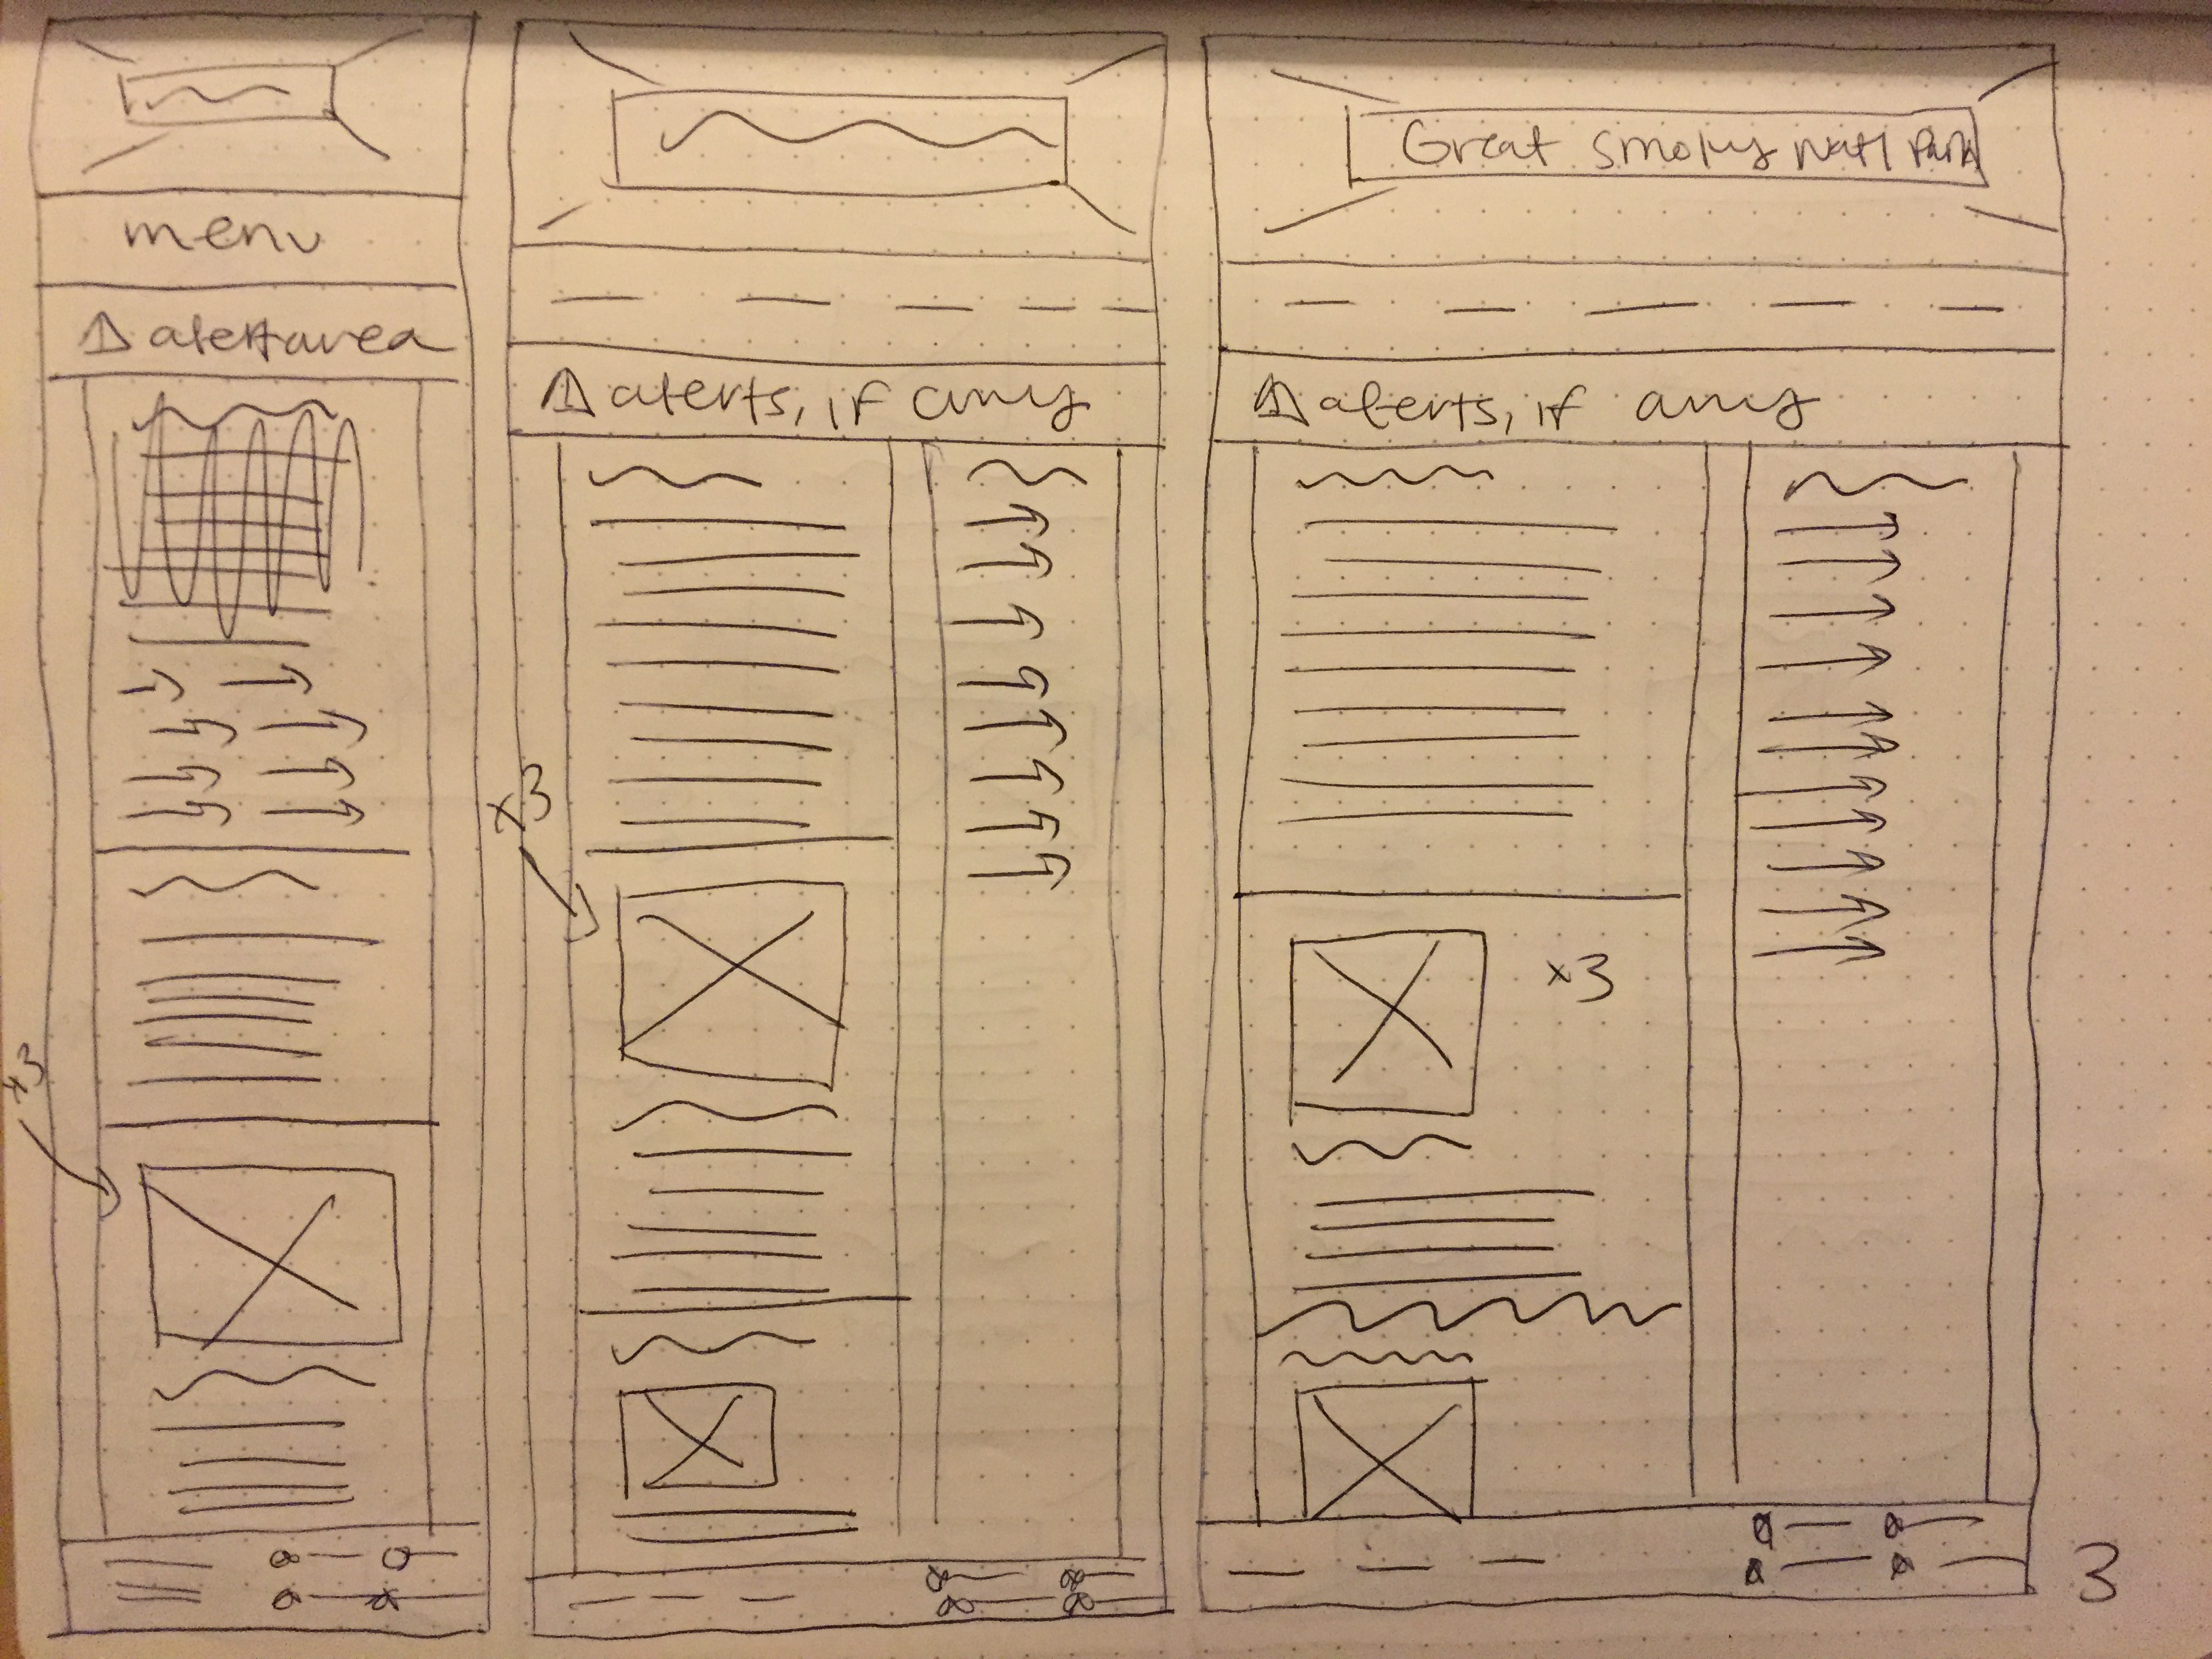 menu
alert area
x3
alerts, if any
x3
Great Smoky Nat'l Park
alerts, if any
x3
3